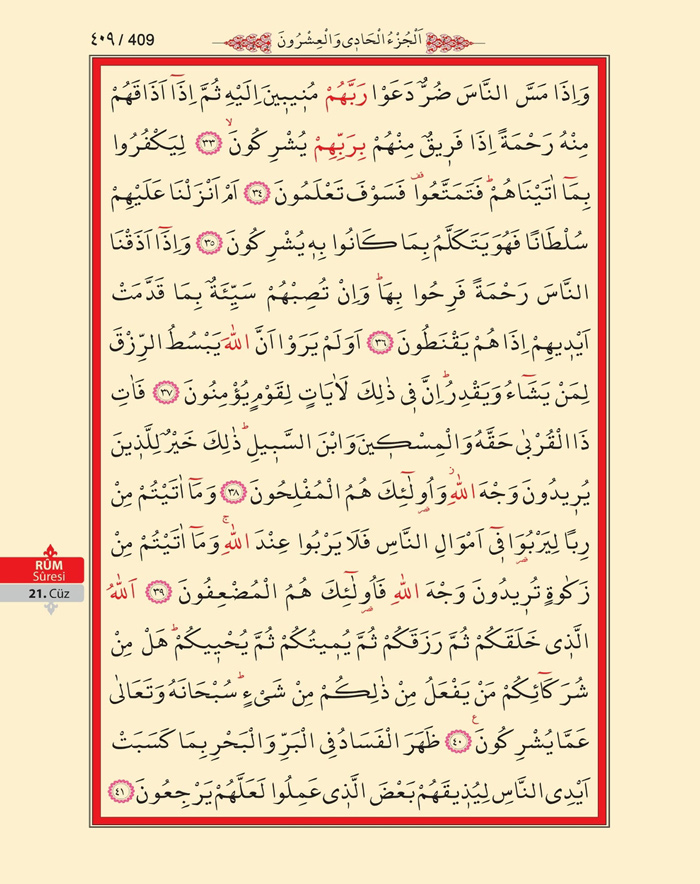 ٤٠٩ / 409
اَلْجُزْءُ الْحَادِى وَالْعِشْرُونَ
وَاِذَا مَسَّ النَّاسَ ضُرٌّ دَعَوْا رَبَّهُمْ مُنٖيبٖينَ اِلَيْهِ ثُمَّ اِذَٓا اَذَاقَهُمْ
مِنْهُ رَحْمَةً اِذَا فَرٖيقٌ مِنْهُمْ بِرَبِّهِمْ يُشْرِكُونَۙ ﴿٣٣﴾ لِيَكْفُرُوا
بِمَٓا اٰتَيْنَاهُمْؕ فَتَمَتَّعُواࣞ فَسَوْفَ تَعْلَمُونَ ﴿٣٤﴾ اَمْ اَنْزَلْنَا عَلَيْهِمْ
سُلْطَانًا فَهُوَ يَتَكَلَّمُ بِمَا كَانُوا بِهٖ يُشْرِكُونَ ﴿٣٥﴾ وَاِذَٓا اَذَقْنَا
النَّاسَ رَحْمَةً فَرِحُوا بِهَاؕ وَاِنْ تُصِبْهُمْ سَيِّئَةٌ بِمَا قَدَّمَتْ
اَيْدٖيهِمْ اِذَا هُمْ يَقْنَطُونَ ﴿٣٦﴾ اَوَلَمْ يَرَوْا اَنَّ اللّٰهَ يَبْسُطُ الرِّزْقَ
لِمَنْ يَشَٓاءُ وَيَقْدِرُؕ اِنَّ فٖى ذٰلِكَ لَاٰيَاتٍ لِقَوْمٍ يُؤْمِنُونَ ﴿٣٧﴾ فَاٰتِ
ذَا الْقُرْبٰى حَقَّهُ وَالْمِسْكٖينَ وَابْنَ السَّبٖيلِؕ ذٰلِكَ خَيْرٌ لِلَّذٖينَ
يُرٖيدُونَ وَجْهَ اللّٰهِؗ وَاُو۬لٰٓئِكَ هُمُ الْمُفْلِحُونَ ﴿٣٨﴾ وَمَٓا اٰتَيْتُمْ مِنْ
رِبًا لِيَرْبُوَا۬ فٖٓى اَمْوَالِ النَّاسِ فَلَا يَرْبُوا عِنْدَ اللّٰهِۚ وَمَٓا اٰتَيْتُمْ مِنْ
زَكٰوةٍ تُرٖيدُونَ وَجْهَ اللّٰهِ فَاُو۬لٰٓئِكَ هُمُ الْمُضْعِفُونَ ﴿٣٩﴾ اَللّٰهُ
الَّذٖى خَلَقَكُمْ ثُمَّ رَزَقَكُمْ ثُمَّ يُمٖيتُكُمْ ثُمَّ يُحْيٖيكُمْؕ هَلْ مِنْ
شُرَكَٓائِكُمْ مَنْ يَفْعَلُ مِنْ ذٰلِكُمْ مِنْ شَىْءٍؕ سُبْحَانَهُ وَتَعَالٰى
عَمَّا يُشْرِكُونَࣖ ﴿٤٠﴾ ظَهَرَ الْفَسَادُ فِى الْبَرِّ وَالْبَحْرِ بِمَا كَسَبَتْ
اَيْدِى النَّاسِ لِيُذٖيقَهُمْ بَعْضَ الَّذٖى عَمِلُوا لَعَلَّهُمْ يَرْجِعُونَ ﴿٤١﴾
RÛM
Sûresi
21. Cüz